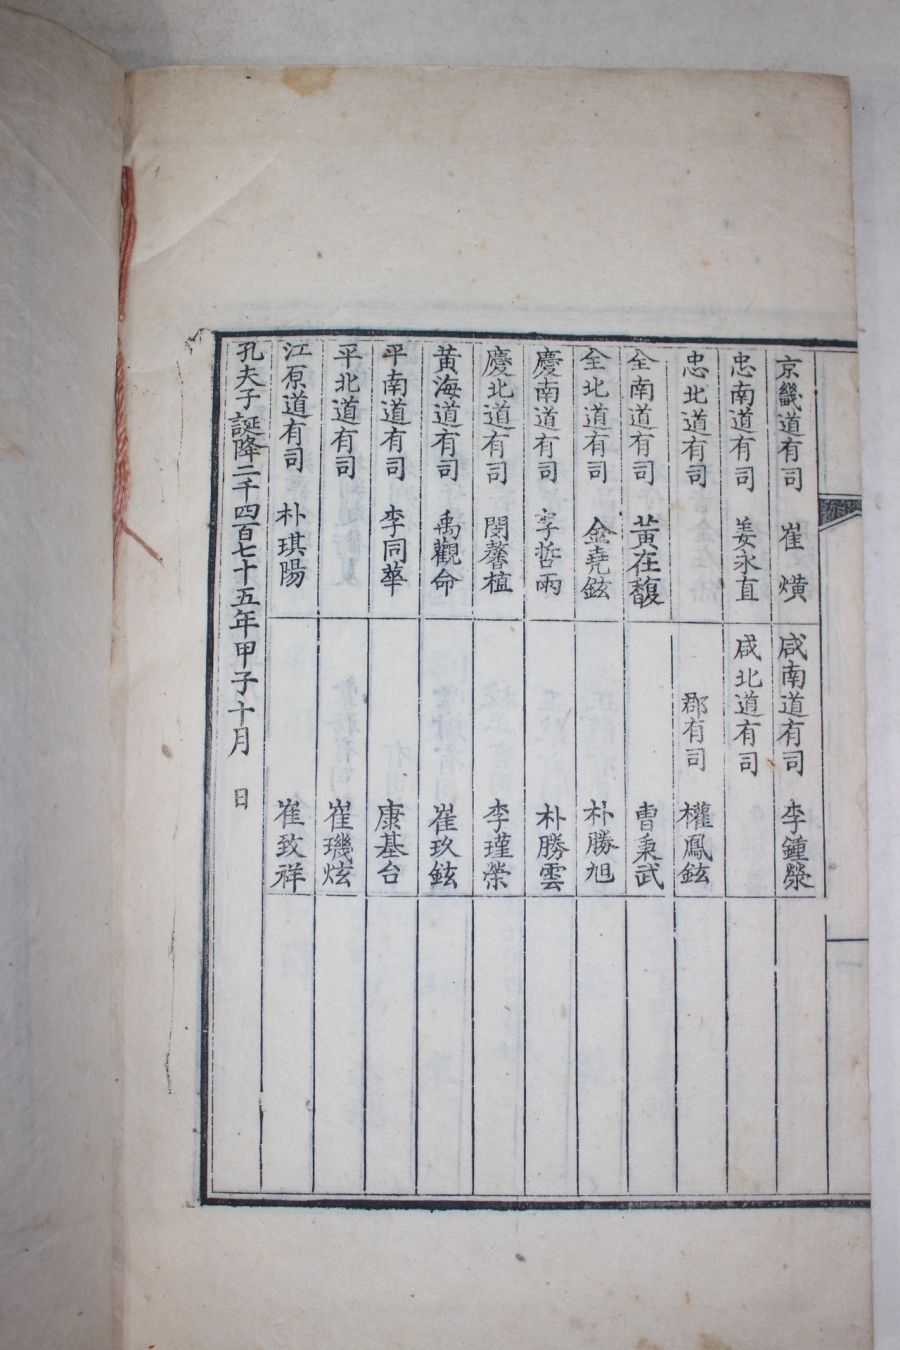 京畿道有司 崔熿 咸南道有司 李鍾滎
忠南道有司 姜永直 咸北道有司
忠北道有司 郡有司 權鳳鉉
全南道有司 黃在馥 曹秉武
全北道有司 金堯鉉 朴勝旭
慶南道有司 李哲雨 朴勝雲
慶北道有司 閔馨植 李瑾榮
黃海道有司 禹觀命 崔玖鉉
平南道有司 李同華 康基台
平北道有司 崔璣炫
江原道有司 朴琪陽 崔致祥
孔夫子誕降二千四百七十五年甲子十月 日